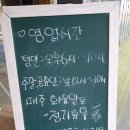 영업시간
평일: 오후 6시~10시
주말, 공휴일: 낮 12시~10시
매주 화요일은
정기휴무